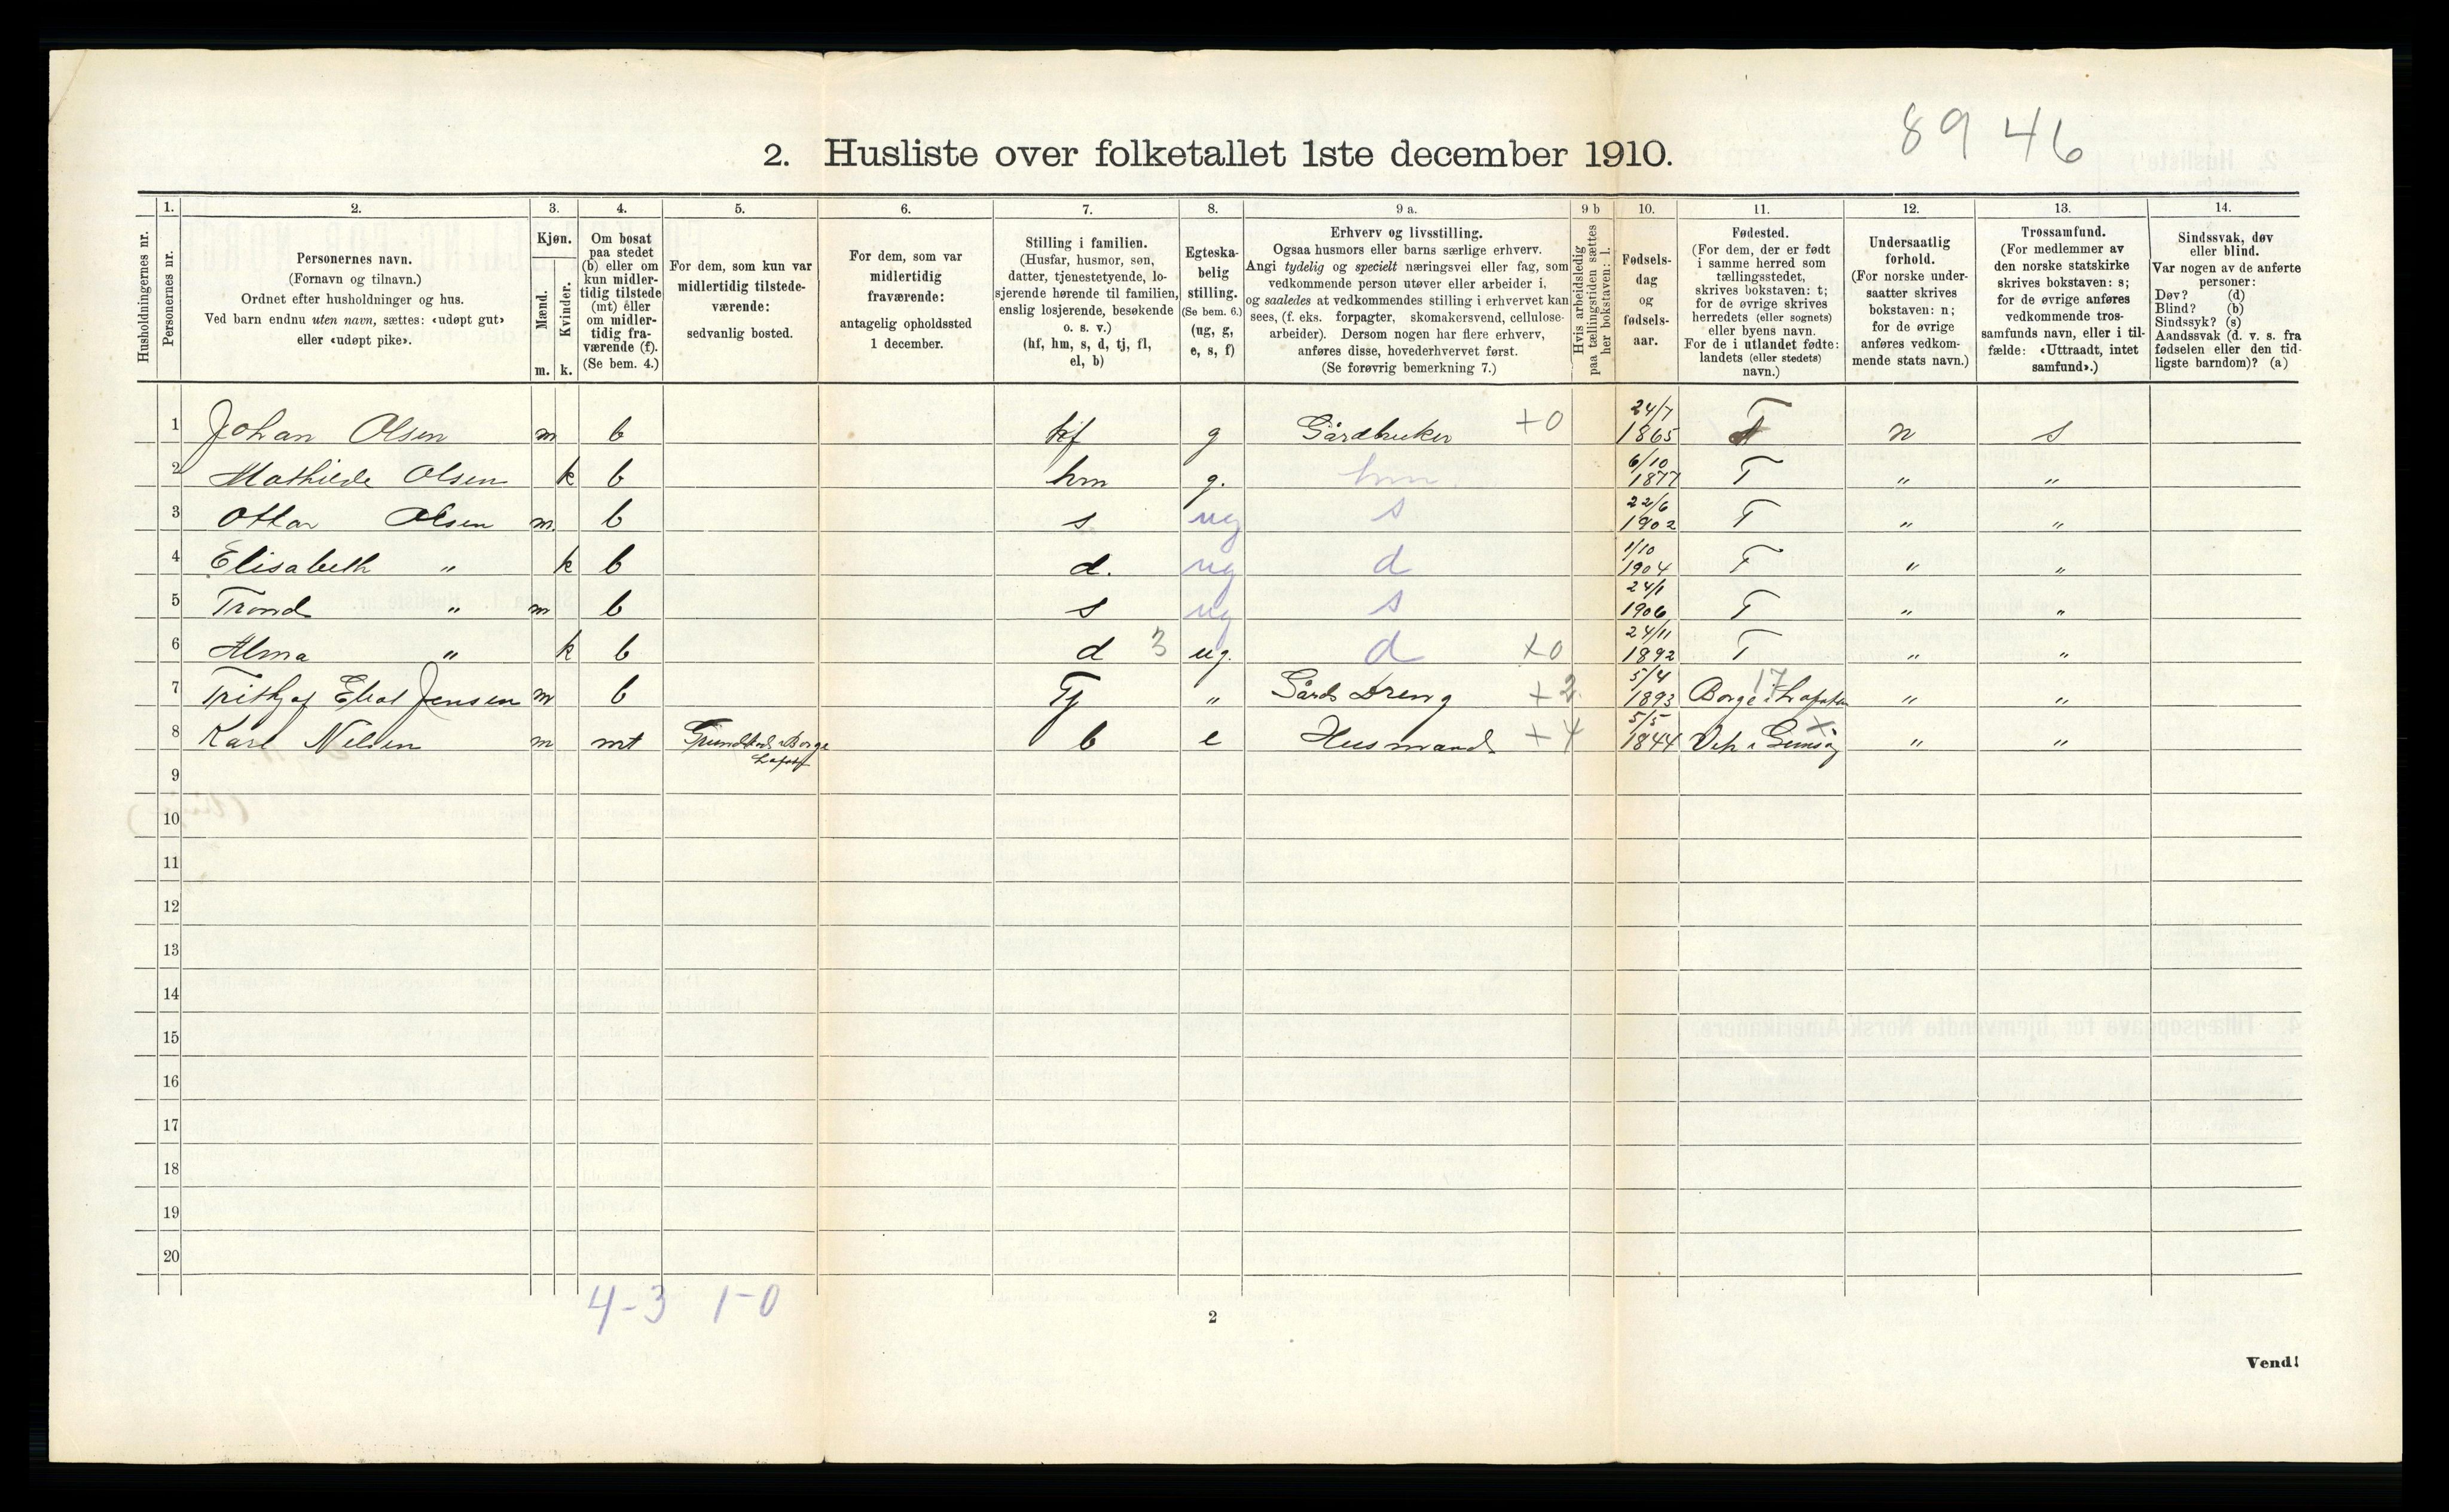 8946
2. Husliste over folketallet 1ste december 1910.
Husholdningernes nr.
1.
Personernes nr.
2.
Personernes navn.
(Fornavn og tilnavn.)
Ordnet efter husholdninger og hus.
Ved barn endnu uten navn, sættes: «udøpt gut»
eller «udøpt pike».
3.
Kjøn.
Mænd.
Kvinder.
m. k.
4.
Om bosat
paa stedet
(b) eller om
kun midler-
tidig tilstede
(mt) eller
om midler-
tidig fra-
værende (f).
(Se bem. 4.)
5.
For dem, som kun var
midlertidig tilstede-
værende:
sedvanlig bosted.
6.
For dem, som var
midlertidig
fraværende:
antagelig opholdssted
1 december.
7.
Stilling i familien.
(Husfar, husmor, søn,
datter, tjenestetyende, lo-
sjerende hørende til familien,
enslig losjerende, besøkende
o. s. v.)
(hf, hm, s, d, tj, fl,
el, b)
8.
Egteska-
belig
stilling.
(Se bem. 6.)
(ug, g,
e, s, f)
9 a.
Erhverv og livsstilling.
Ogsaa husmors eller barns særlige erhverv.
Angi tydelig og specielt næringsvei eller fag, som
vedkommende person utøver eller arbeider i,
og saaledes at vedkommendes stilling i erhvervet kan
sees, (f. eks. forpagter, skomakersvend, cellulose-
arbeider). Dersom nogen har flere erhverv,
anføres disse, hovederhvervet først.
(Se forøvrig bemerkning 7.)
9 b
Hvis arbeidsledig
paa tællingstiden sættes
her bokstaven: l.
10.
Fødsels-
dag
og
fødsels-
aar.
11.
Fødested.
(For dem, der er født
i samme herred som
tællingsstedet,
skrives bokstaven: t;
for de øvrige skrives
herredets (eller sognets)
eller byens navn.
For de i utlandet fødte:
landets (eller stedets)
navn.)
12.
Undersaatlig
forhold.
(For norske under-
saatter skrives
bokstaven: n;
for de øvrige
anføres vedkom-
mende stats navn.)
13.
Trossamfund.
(For medlemmer av
den norske statskirke
skrives bokstaven: s;
for de øvrige anføres
vedkommende tros-
samfunds navn, eller i til-
fælde: «Uttraadt, intet
samfund».)
14.
Sindssvak, døv
eller blind.
Var nogen av de anførte
personer:
Døv? (d)
Blind? (b)
Sindssyk? (s)
Aandssvak (d. v. s. fra
fødselen eller den tid-
ligste barndom)? (a)
1 Johan Olsen m b hf g Gårdbruker +0 24/7 1865 T n s
2 Mathilde Olsen k b hm g. hm. 6/10 1877 T " "
3 Ottar Olsen m. b s ug s 22/6 1902 T " "
4 Elisabeth " k b d. ug d 1/10 1904 T " "
5 Trond " m b s ug s 24/1 1906 T " "
6 Alma " k b d 3 ug. d +0 24/11 1892 T " "
7 Jensen m b Tj " Gårds Dreng +2 5/4 1893 Borge i Lofoten 17 " "
8 Karl Nelsen m mt Borge b e Husmand +4 5/5 1844 " "
9
10
11
12
13
14
15
16
17
18
19
20
4-3 1-0
2
Vend!